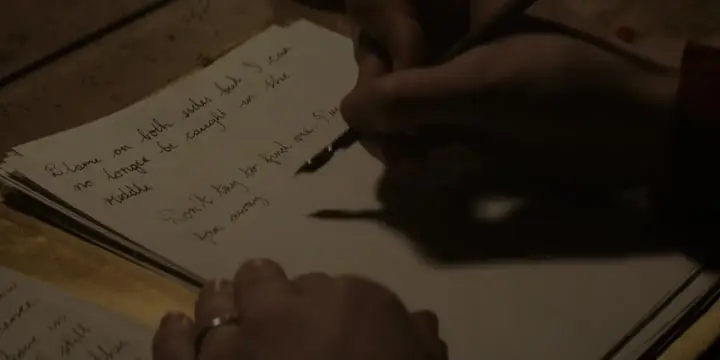 Blame on both sides but I can
no longer be caught in the
middle
Don't try to find me I'm
far away
in
still